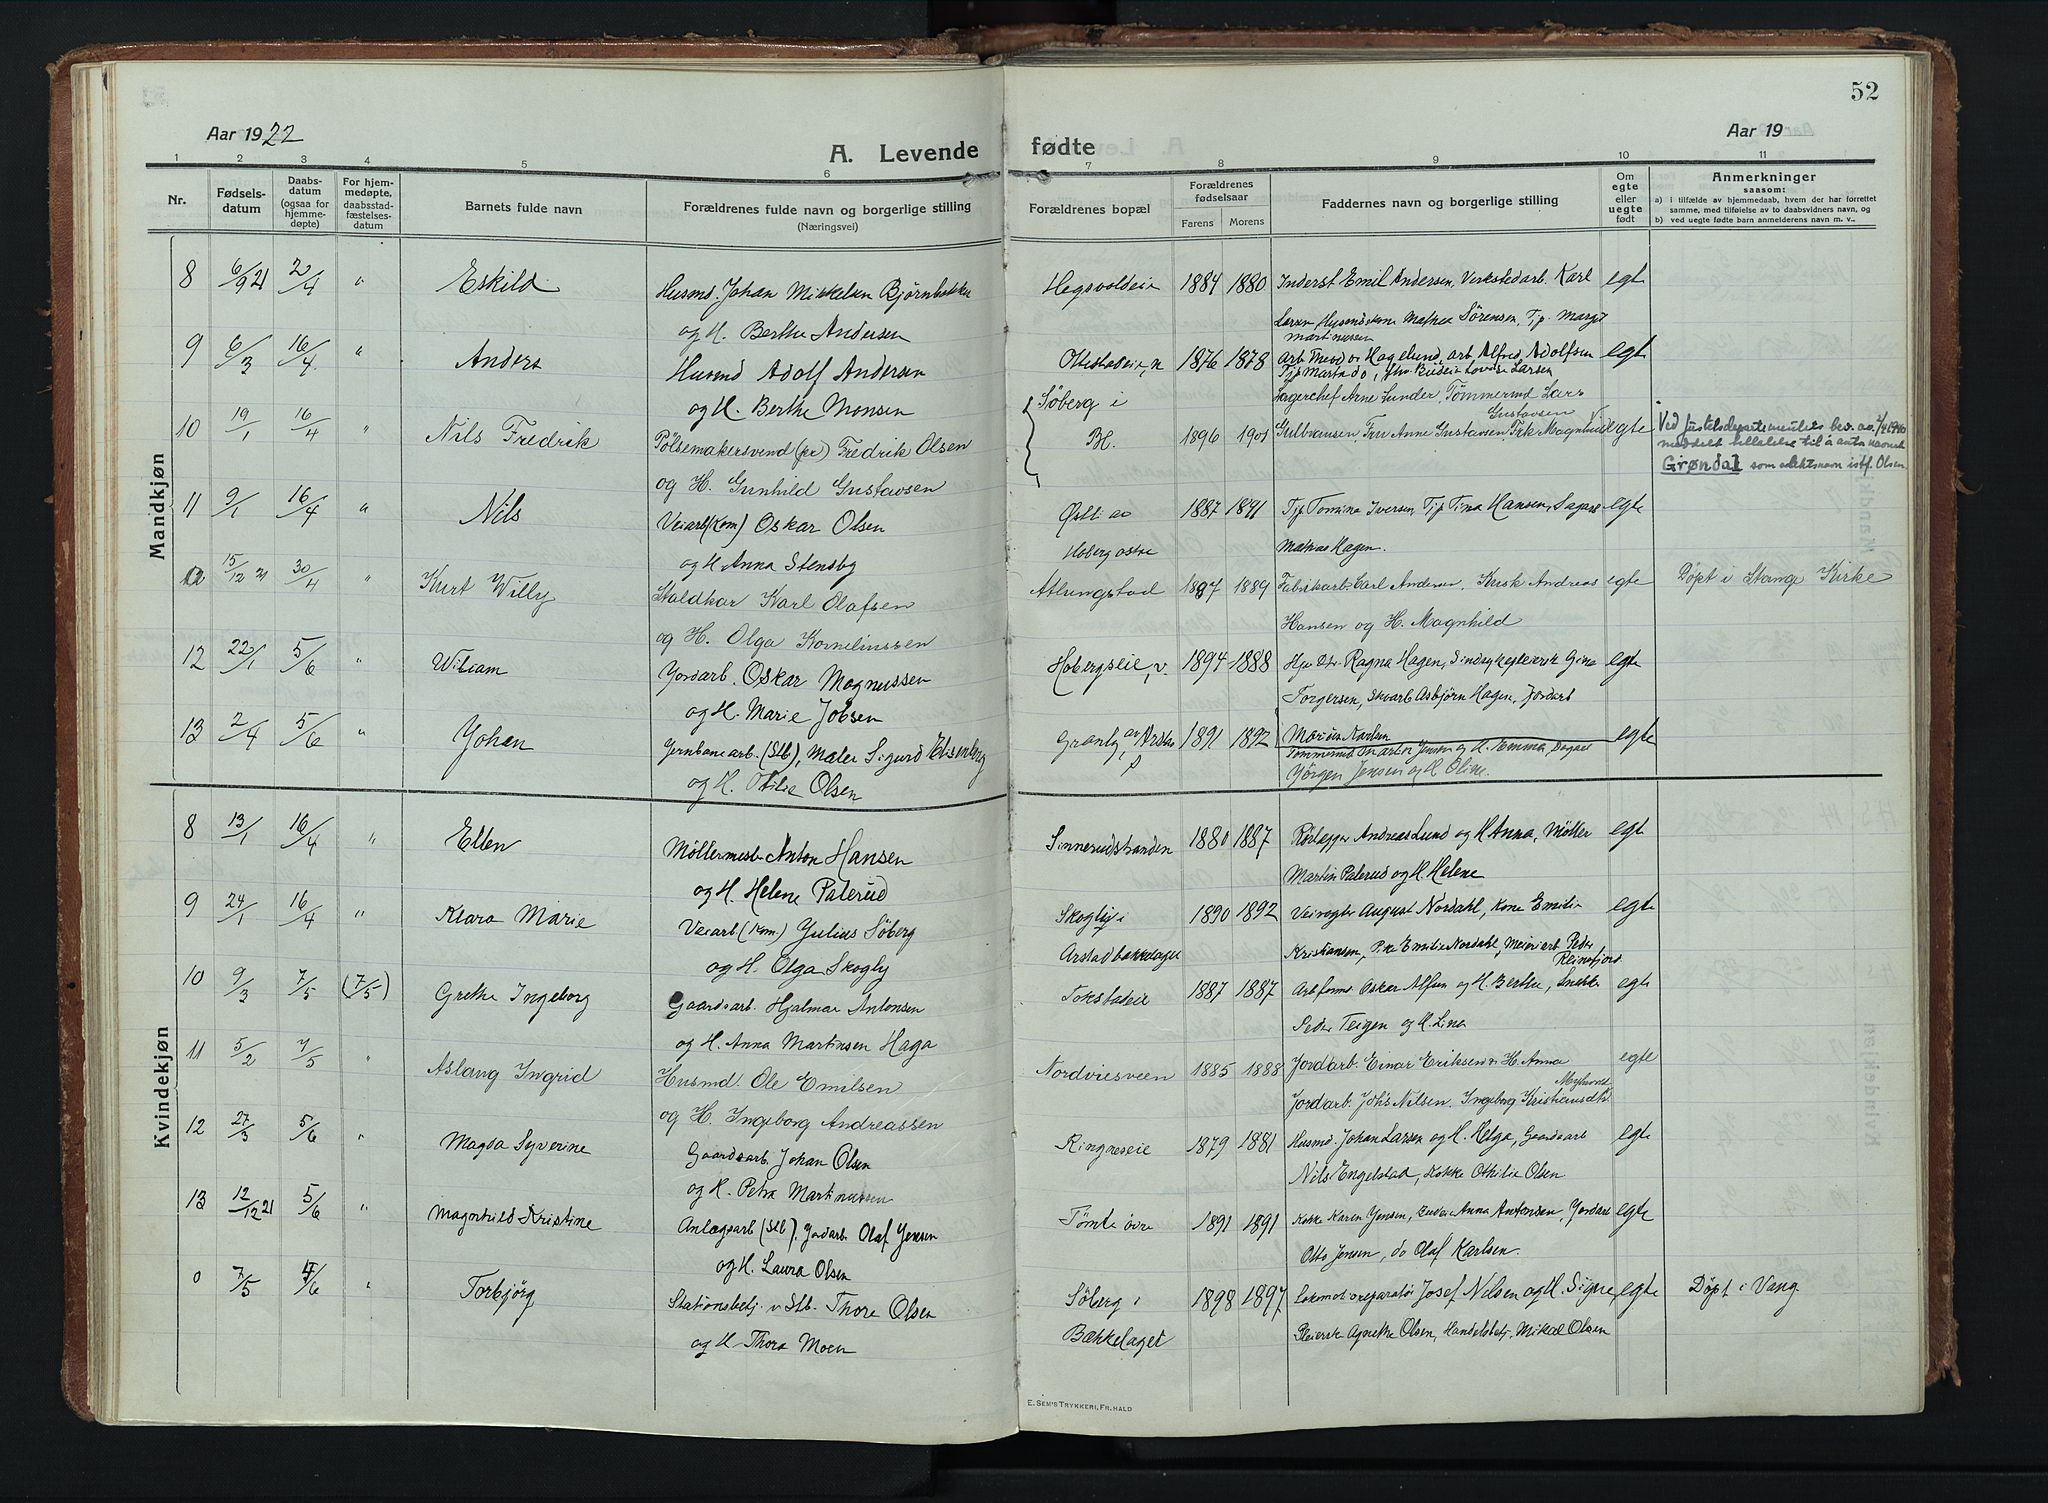 52
Aar 1922
A. Levende fødte
Aar 19
1 2 3 4 5 6 7 8 9 10 11
Nr.
Fødsels-
datum
Daabs-
datum
(ogsaa for
hjemme-
døpte)
For hjem-
medøpte,
daabsstad-
fæstelses-
datum
Barnets fulde navn
Forældrenes fulde navn og borgerlige stilling
(Næringsvei)
Forældrenes bopæl
Forældrenes
fødselsaar
Farens Morens
Faddernes navn og borgerlige stilling
Om
egte
eller
uegte
født
Anmerkninger
saasom:
a) i tilfælde av hjemmedaab, hvem der har forrettet
samme, med tilføielse av to daabsvidners navn, og
b) ved uegte fødte barn anmelderens navn m. v.
Mandkjøn
8 6/9 21 2/4 " Eskild Husmd. Johan Mikkelsen 1884 1880 Inderst Emil Andersen, Verkstedarb. Karl egte
og H. Berthe Andersen Larsen Mathea Sörensen, Tj.p. Margit
Martinussen
9 6/3 16/4 " Anders Husmd Adolf Andersen Ottestadeie, n 1876 1878 Arb Hagelund, arb Alfred Adolfsen egte
og H. Berthe Monsen Lovise Larsen
10 19/1 16/4 " Nils Fredrik Pölsemakersvend (pr) Fredrik Olsen Söberg i B.H. 1896 1901 Lagerchef Arne Sunder, Tömmermd Lars Gustavsen egte
og H. Gunhild Gustavsen Gulbransen, Fru Anne Gustavsen, Frk Magnhild
Ved Justisdepartementets bev. av 1940
meddelt tillatelse til å anta navnet
Grøndal som slektsnavn istf. Olsen
11 9/1 16/4 " Nils Veiarb (Kom) Oskar Olsen Östli av 1887 1891 Tjp Tomina Iversen, Tjp Tina Hansen, egte
og H Anna Stensby Hoberg östre Mathias Hagen.
15/12 21 30/4 " Kurt Willy Staldkar Karl Olafsen Atlungstad 1897 1889 Fabrikarb. Carl Andersen, Andreas egte Döpt i Stange Kirke
og H. Olga Korneliussen Hansen og H. Magnhild
12 22/1 5/6 " Wiliam Jordarb. Oskar Magnussen Hobergseie, v. 1894 1888 Ragna Hagen, Sindsykepleierske Gina egte
og H. Marie Jobsen Torgersen, Asbjörn Hagen, Jordarb
Marius Karlsen
13 2/4 5/6 " Johan Jernbanearb. (Stb), Maler Sigurd Granly 1891 1892 Tömmermd Martin Jensen og H. Emma, egte
og H. Otilie Olsen Jörgen Jensen og H Oline.
Kvindekjøn
8 13/1 16/4 " Ellen Möllermestr Anton Hansen Sinnerudstranden 1880 1887 Andreas Lund og H Anna, Möller egte
og H. Helene Palerud Martin Palerud og H. Helene
9 24/1 16/4 " Klara Marie Veiarb (Kom.) Julius Söberg Skogly i 1890 1892 Veivogter August Nordahl, Kone Emilie egte
og H. Olga Skogly Arstadbækkelaget Kristiansen, Emilie Nordahl, Meieriarb Peder
10 9/3 7/5 (7/5) Grethe Ingeborg Gaardsarb. Hjalmar Antonsen Tokstadeie 1887 1887 Arbformd Oskar Alfsen og H. Berthe, Snekker egte
og H. Anna Martinsen Haga Peder Teigen og H. Lina
11 5/2 7/5 " Aslaug Ingrid Husmd. Ole Emilsen Nordviesveen 1885 1888 Jordarb. Einar Eriksen H. Anna egte
og H. Ingeborg Andreassen Jordarb. Johs Nilsen, Ingeborg Kristiansdtr
12 27/3 5/6 " Magda Syverine Gaardsarb. Johan Olsen Ringneseie 1879 1881 Husmd. Johan Larsen og H. Helga, Gaardsarb egte
og H. Petra Martinussen Nils Engelstad, Kokke Othilie Olsen
13 12/12 21 5/6 " Magnhild Kristine Anlægsarb (Stb), Jordarb. Olaf Jensen Tömte övre 1891 1891 Kokke Karen Jensen, Anna Antonsen, Jordarb egte
og H. Laura Olsen Otto Jensen, do Olaf Karlsen.
0 7/5 /6 " Torbjörg Stationsbetj. v Stb. Thore Olsen Söberg i 1898 1897 Lokomotivreparatör Josef Nilsen og H. Signe, egte Döpt i Vang.
og H Thora Moen Bækkelaget Pleierske Agnethe Olsen, Handelsbetj. Mikal Olsen
E. SEM'S TRYKKERI, FR. HALD